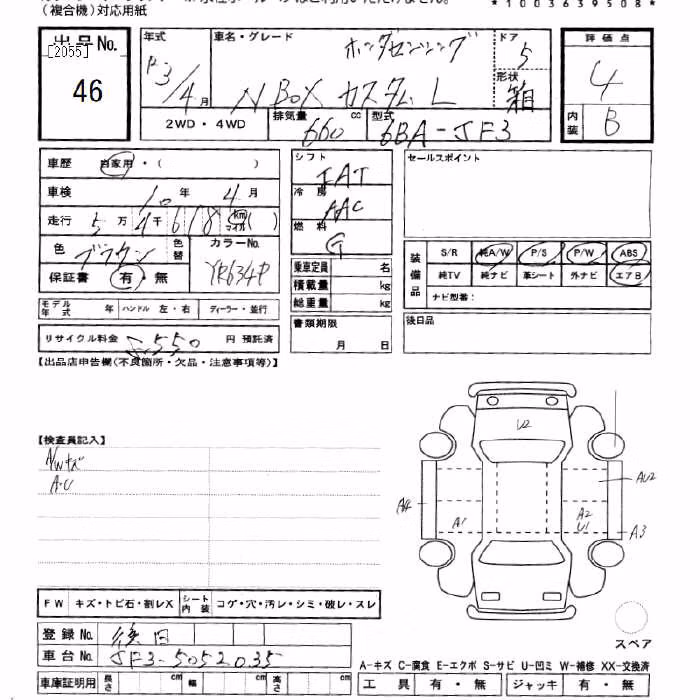 （複合機）対応用紙
*1003639508*
出品No.
[2055]
46
年式
R3/4月
車名・グレード
ホンダセンシング
N BOX カスタム L
ドア
5
形状
箱
評価点
4
内装
B
2WD・4WD
排気量
660 cc
型式
6BA-JF3
車歴 自家用・( )
車検 10年 4月
走行 5万4千618 km マイル ( )
色 ブラウン 色替
カラーNo.
YR634P
保証書 有 無
シフト
IAT
冷房
AAC
燃料
G
乗車定員 名
積載量 kg
総重量 kg
書類期限
月 日
セールスポイント
装備品
S/R 純A/W P/S P/W ABS
純TV 純ナビ 革シート 外ナビ エアB
ナビ型番：
後日品
モデル年式 年 ハンドル 左・右 ディーラー・並行
リサイクル料金 円 預託済
【出品店申告欄(不良箇所・欠品・注意事項等)】
【検査員記入】
A/Wキズ
A・U
U2
A4
A1
A2
U1
AU2
A3
FW キズ・トビ石・割レX シート内装 コゲ・穴・汚レ・シミ・破レ・スレ
スペア
登録No. 後日
車台No. JF3-5052035
車庫証明用 長さ cm 幅 cm 高さ cm
A-キズ C-腐食 E-エクボ S-サビ U-凹ミ W-補修 XX-交換済
工具 有・無 ジャッキ 有・無